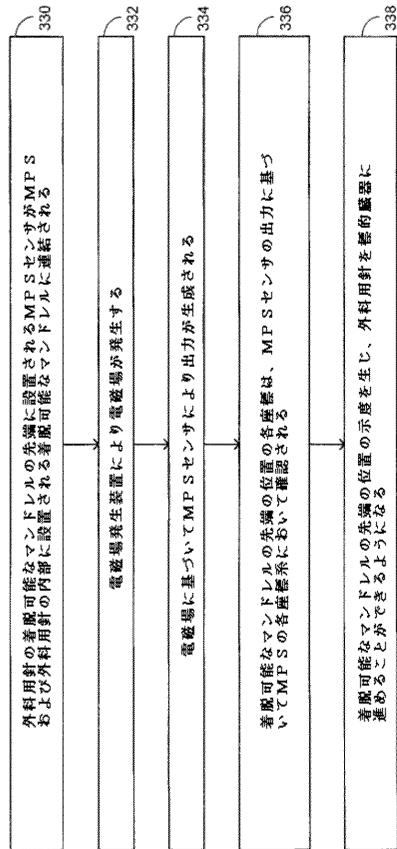 外科用針の着脱可能なマンドレルの先端に設置されるMPSセンサがMPS
および外科用針の内部に設置される着脱可能なマンドレルに連結される
330
電磁場発生装置により電磁場が発生する
332
電磁場に基づいてMPSセンサにより出力が生成される
334
着脱可能なマンドレルの先端の位置の各座標は、MPSセンサの出力に基づ
いてMPSの各座標系において確認される
336
着脱可能なマンドレルの先端の位置の示度を生じ、外科用針を標的臓器に
進めることができるようになる
338